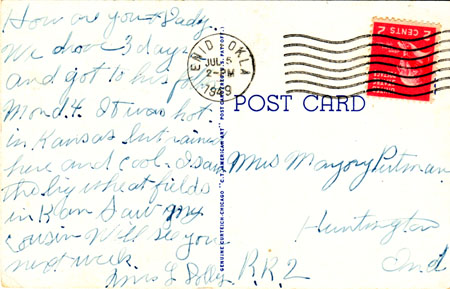 How are you Judy.
We drove 3 days
and got to this
Mond 4. It was hot
in Kansas but rained
here and cool. I saw
the big wheat fields
in Kan Saw my
cousin Will see you
next week
Mrs L
ENID, OKLA
JUL 5
2-PM
1949
POST CARD
2 CENTS 2
GENUINE CURTEICH-CHICAGO "C.T. AMERICAN ART" POST CARD (REG. U.S. PAT. OFF.)
Mrs Marjory Putman
Huntington
R.R.2
Ind